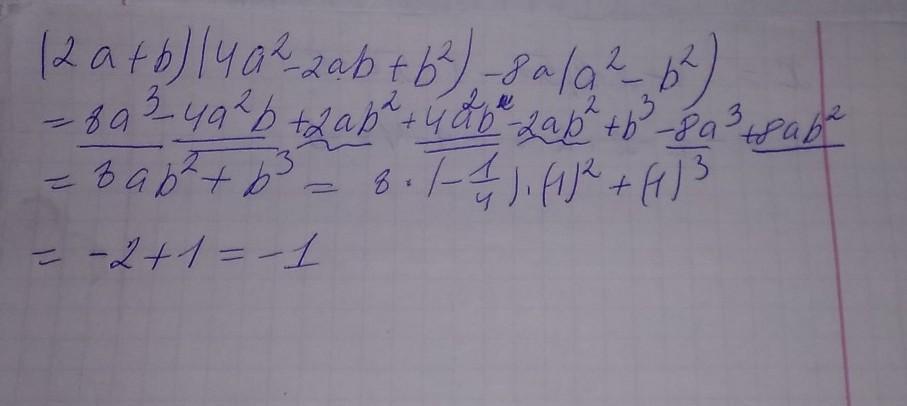 (2a+b)(4a²-2ab+b²)-8a(a²-b²)
=8a³-4a²b+2ab²+4a²b-2ab²+b³-8a³+8ab²
=8ab²+b³=8·(-1/4)·(1)²+(1)³
=-2+1=-1